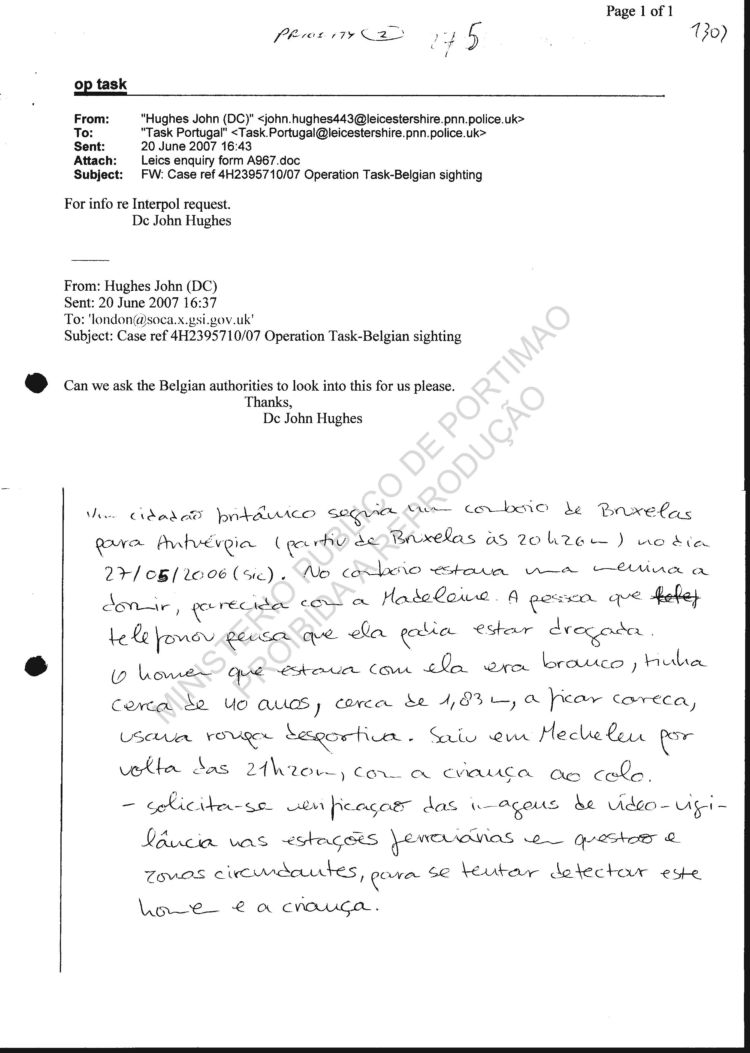 Page 1 of 1
PRIORITY 2
275
1307
op task
From: "Hughes John (DC)" <john.hughes443@leicestershire.pnn.police.uk>
To: "Task Portugal" <Task.Portugal@leicestershire.pnn.police.uk>
Sent: 20 June 2007 16:43
Attach: Leics enquiry form A967.doc
Subject: FW: Case ref 4H2395710/07 Operation Task-Belgian sighting
For info re Interpol request.
Dc John Hughes
From: Hughes John (DC)
Sent: 20 June 2007 16:37
To: 'london@soca.x.gsi.gov.uk'
Subject: Case ref 4H2395710/07 Operation Task-Belgian sighting
Can we ask the Belgian authorities to look into this for us please.
Thanks,
Dc John Hughes
MINISTÉRIO PUBLICO DE PORTIMAO
PROIBIDA A REPRODUÇÃO
Um cidadão britânico seguia num comboio de Bruxelas
para Antuérpia (partiu de Bruxelas às 20h26m) no dia
27/05/2006 (sic). No comboio estava uma menina a
dormir, parecida com a Madeleine. A pessoa que
telefonou pensa que ela podia estar drogada.
O homem que estava com ela era branco, tinha
cerca de 40 anos, cerca de 1,83m, a ficar careca,
usava roupa desportiva. Saiu em Mechelen por
volta das 21h20m, com a criança ao colo.
- solicita-se verificação das imagens de vídeo-vigi-
lância nas estações ferroviárias em questão e
zonas circundantes, para se tentar detectar este
homem e a criança.